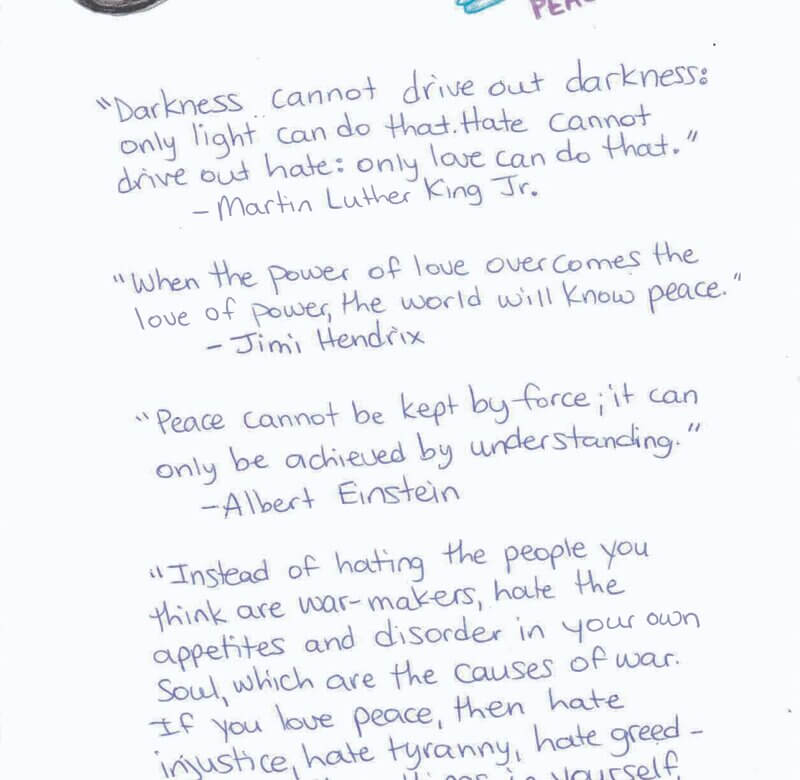 "Darkness cannot drive out darkness:
only light can do that. Hate cannot
drive out hate: only love can do that."
- Martin Luther King Jr.
"When the power of love overcomes the
love of power, the world will know peace."
- Jimi Hendrix
"Peace cannot be kept by force; it can
only be achieved by understanding."
- Albert Einstein
"Instead of hating the people you
think are war-makers, hate the
appetites and disorder in your own
Soul, which are the causes of war.
If you love peace, then hate
injustice, hate tyranny, hate greed -
in yourself